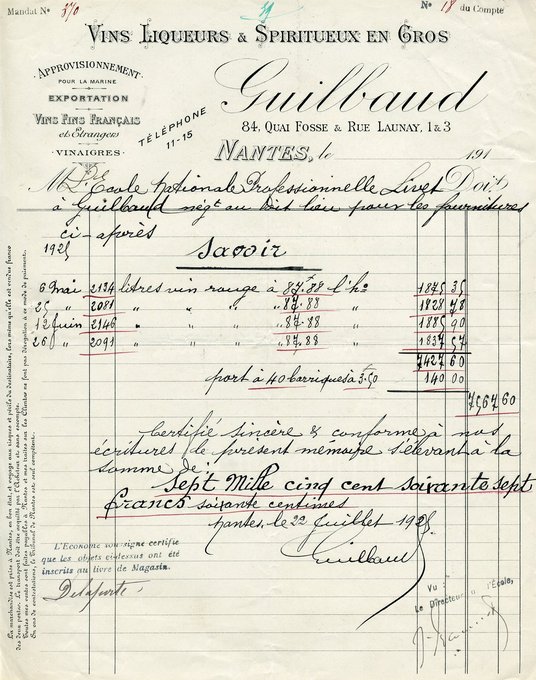 Mandat No 370
39
No 18 du Compte
VINS LIQUEURS & SPIRITUEUX EN GROS
APPROVISIONNEMENT
POUR LA MARINE
EXPORTATION
VINS FINS FRANÇAIS
et Étrangers
VINAIGRES
TÉLÉPHONE
11-15
Guilbaud
84, QUAI FOSSE & RUE LAUNAY, 1 & 3
NANTES, le 191
M L'École Nationale Professionnelle Livet Doit
à Guilbaud négt au dit lieu pour les fournitures
ci-après
1925 Savoir
6 Mai 2134 litres vin rouge à 87.88 l'ho 1875 35
25 " 2081 " " " " 87.88 1828 78
12 Juin 2146 " " " " 87.88 1885 90
26 " 2091 " " " " 87.88 1837 57
7427 60
port à 40 barriques à 3.50 140 00
7567 60
Certifié sincère & conforme à nos
écritures le présent mémoire s'élevant à la
somme de:
Sept Mille cinq cent soixante sept
francs soixante centimes
Nantes, le 22 Juillet 1925
Guilbaud
L'Econome soussigné certifie
que les objets ci-dessus ont été
inscrits au livre de Magasin.
Delaporte
Vu:
Le Directeur de l'École,
La marchandise est prise à Nantes, en bon état, et voyage aux risques et périls du destinataire, lors même qu'elle est vendue franco
des deux portes. Le transport doit être acquitté par l'Acheteur et sans escompte.
Toutes mes ventes sont faites payables à Nantes et mes traites sur les Clients ne font pas dérogation à ce mode de paiement.
En cas de contestations, le Tribunal de Nantes est seul compétent.